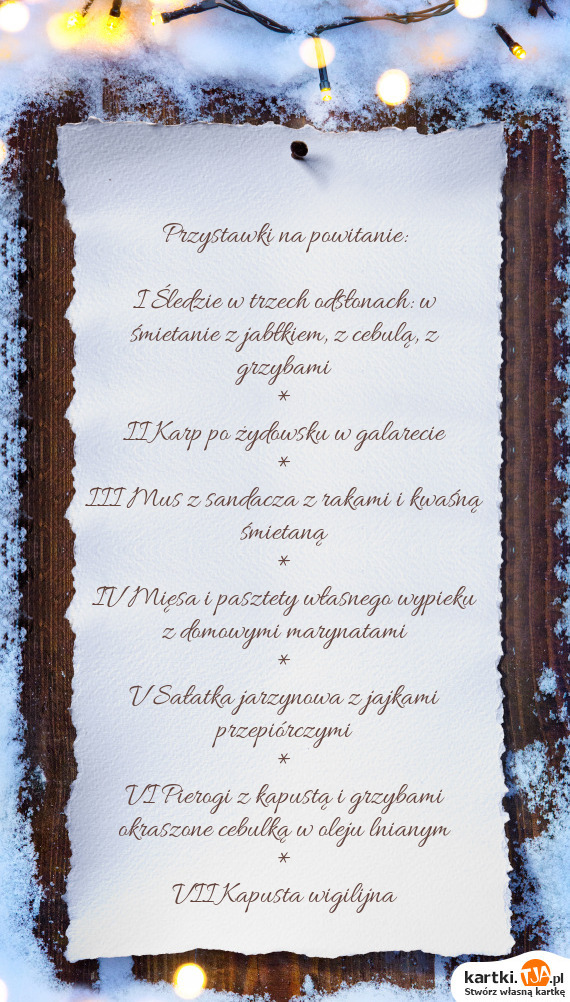 Przystawki na powitanie:
I Śledzie w trzech odsłonach: w
śmietanie z jabłkiem, z cebulą, z
grzybami
*
II Karp po żydowsku w galarecie
*
III Mus z sandacza z rakami i kwaśną
śmietaną
*
IV Mięsa i pasztety własnego wypieku
z domowymi marynatami
*
V Sałatka jarzynowa z jajkami
przepiórczymi
*
VI Pierogi z kapustą i grzybami
okraszone cebulką w oleju lnianym
*
VII Kapusta wigilijna
kartki.TJA.pl
Stwórz własną kartkę